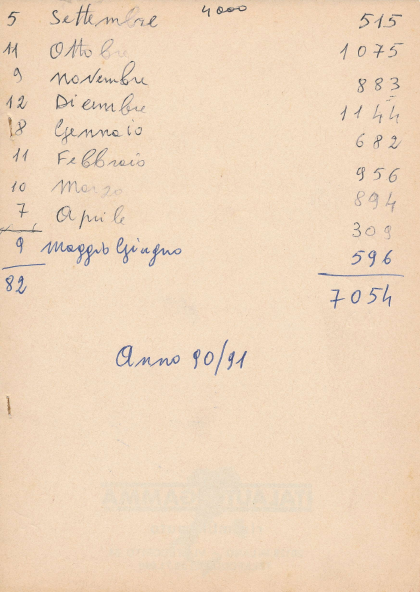 4000
5 Settembre 515
11 Ottobre 1075
9 Novembre 883
12 Dicembre 1144
8 Gennaio 682
11 Febbraio 956
10 Marzo 894
7 Aprile 309
9 Maggio Giugno 596
82 7054
Anno 90/91